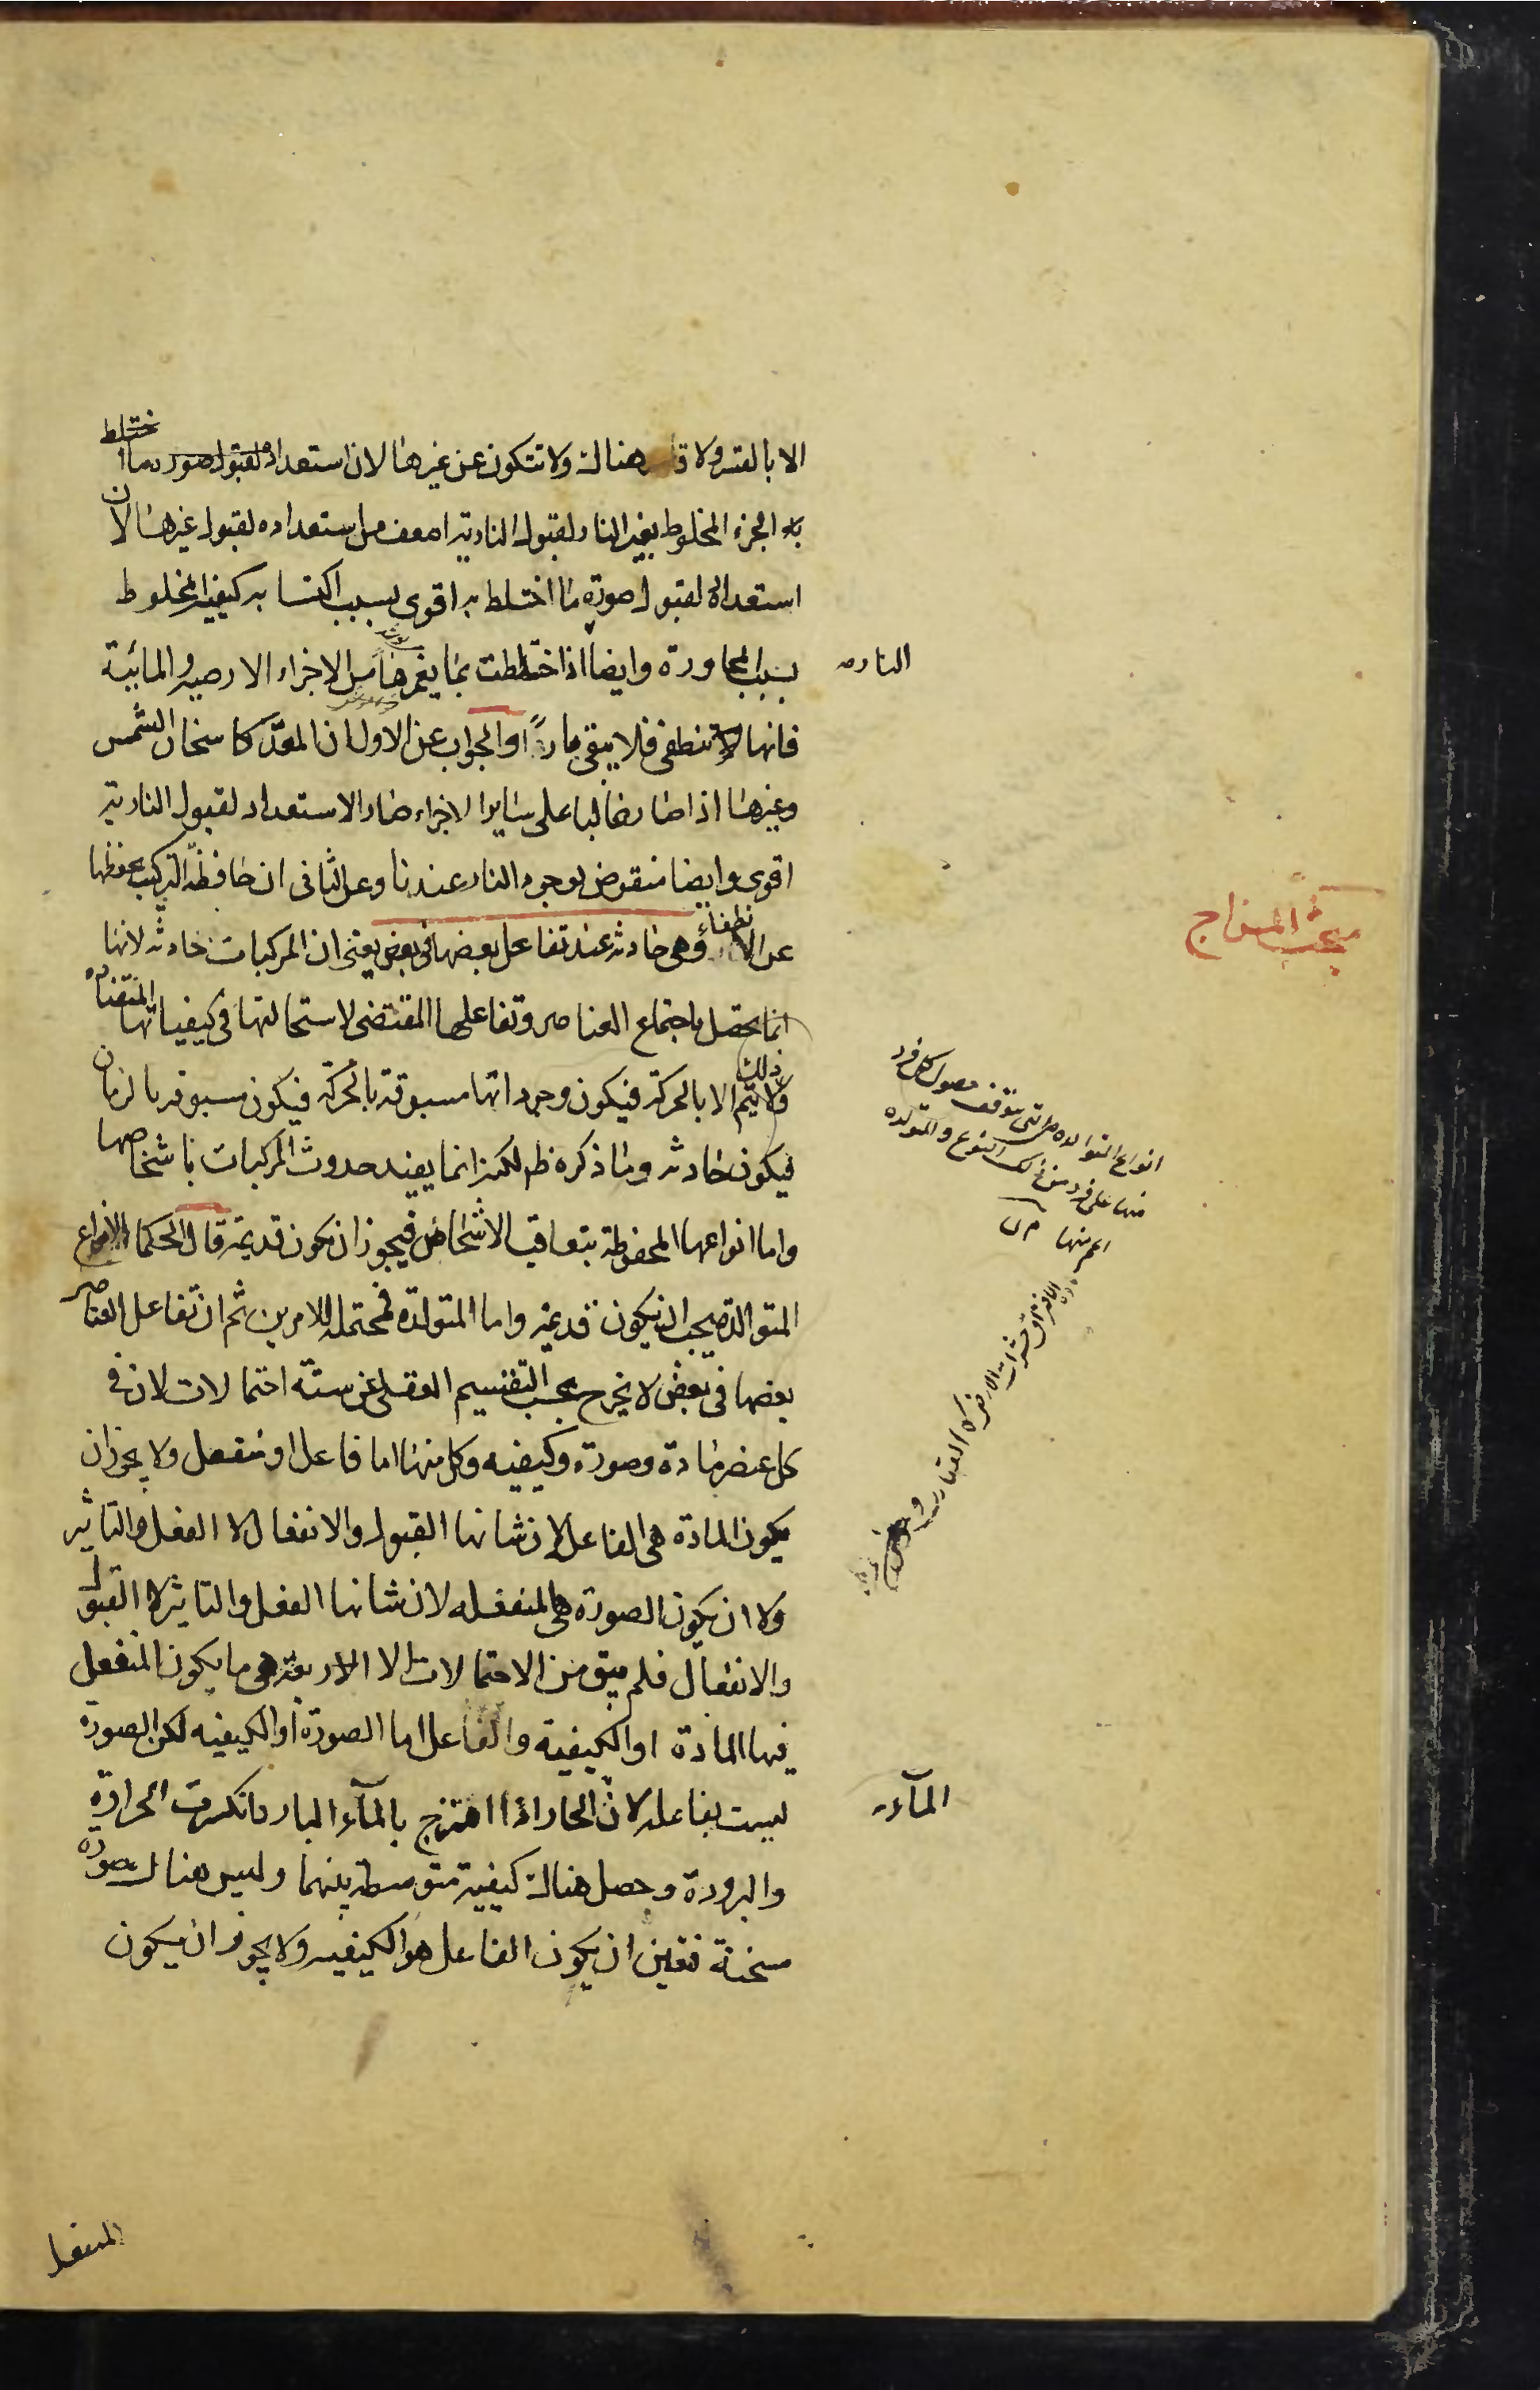 الا بالقسر ولا قاسر هناك ولا تتكون عن غيرها لان استعداد لقبول صورة ما اختلط
به الجزء المخلوط بغير النار لقبول النارية اضعف من استعداده لقبول غيرها لان
استعداده لقبول صورة ما اختلط به اقوى بسبب اكتسابه كيفية المخلوط
بسبب المجاورة وايضا اذا اختلطت بما يغمرها من الاجزاء الارضية والمائية
النارية
فانها تنطفى فلا يبقى نارا والجواب عن الاول ان المعد كاسخان الشمس
وغيرها اذا صار غالبا على سائر الاجزاء صار الاستعداد لقبول النارية
اقوى وايضا منقوض بوجود النار عندنا وعن الثانى ان حافظة التركيب يحفظها
عن الانطفاء وهى حادثة عند تفاعل بعضها فى بعض يعنى ان المركبات حادثة لانها
مبحث المزاج
انما يحصل باجتماع العناصر وتفاعلها المقتضى لاستحالتها فى كيفياتها المتضادة
ولا يتم ذلك الا بالحركة فيكون وجوداتها مسبوقة بالحركة فيكون مسبوقة بالزمان
فيكون حادثة وما ذكره ظ لكنه انما يفيد حدوث المركبات باشخاصها
واما انواعها المحفوظة بتعاقب الاشخاص فيجوز ان يكون قديمة قال الحكما الانواع
المتوالدة يجب ان يكون قديمة واما المتولدة فمحتملة للامرين ثم ان تفاعل العناصر
بعضها فى بعض لا يخرج بحسب التقسيم العقلى عن ستة احتمالات لان فى
كل عنصر مادة وصورة وكيفية وكل منها اما فاعل او منفعل ولا يجوز ان
يكون المادة هى الفاعل لان شانها القبول والانفعال لا الفعل والتاثير
ولا ان يكون الصورة هى المنفعلة لان شانها الفعل والتاثير لا القبول
والانفعال فلم يبق من الاحتمالات الا الاربعة هى ما يكون المنفعل
فيها المادة او الكيفية والفاعل اما الصورة او الكيفية لكن الصورة
ليست بفاعلة لان الحار اذا امتزج بالمآء البارد انكسرت الحرارة
المآء
والبرودة وحصل هناك كيفية متوسطة بينهما وليس هناك صورة
مسخنة فتعين ان يكون الفاعل هو الكيفية ولا يجوز ان يكون
انواع المتوالده هى التى يتوقف حصول كل فرد
منها على فرد من ذلك النوع والمتولده
اعم منها
المنفعل